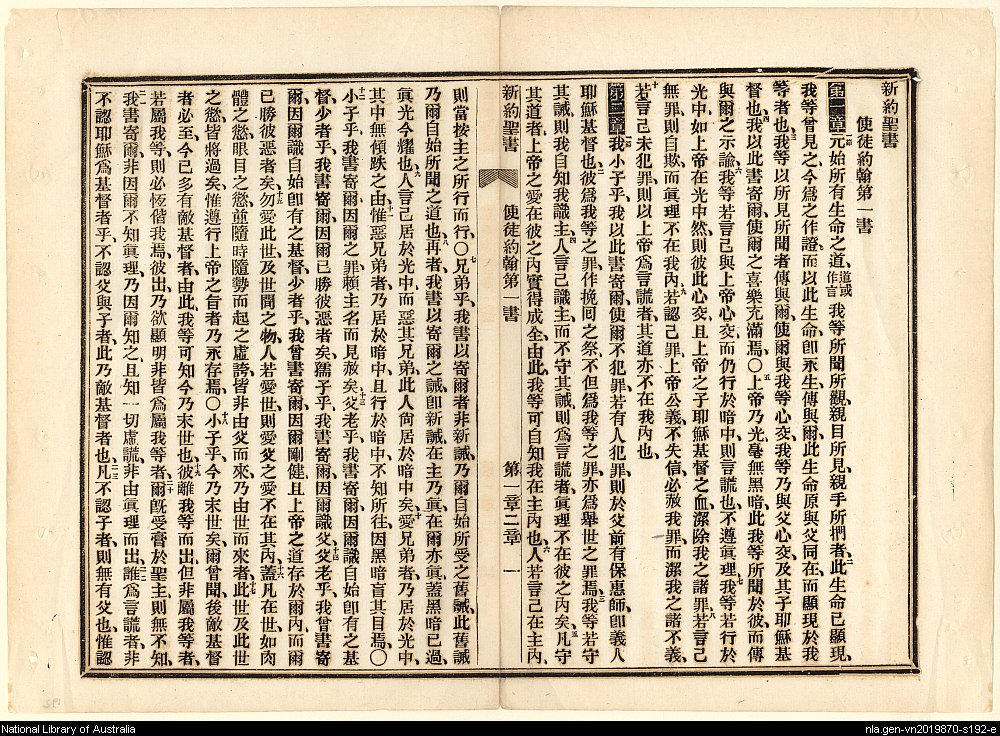 新約聖書
使徒約翰第一書
第一章元始所有生命之道、道或作言我等所聞所觀、親目所見、親手所捫者、二此生命已顯現、
我等曾見之、今為之作證、而以此生命、即永生、傳與爾、此生命原與父同在、而顯現於我
等者也、三我等以所見所聞者傳與爾、使爾與我等心交、我等乃與父心交、及其子耶穌基
督也、四我以此書寄爾、使爾之喜樂充滿焉、〇五上帝乃光、毫無黑暗、此我等所聞於彼、而傳
與爾之示諭、六我等若言己與上帝心交、而仍行於暗中、則言謊也、不遵眞理、七我等若行於
光中、如上帝在光中然、則彼此心交、且上帝之子耶穌基督之血、潔除我之諸罪、八若言己
無罪、則自欺、而眞理不在我內、九若認己罪、上帝公義、不失信、必赦我罪、而潔我之諸不義、
十若言己未犯罪、則以上帝為言謊者、其道亦不在我內也、
第二章我小子乎、我以此書寄爾、使爾不犯罪、若有人犯罪、則於父前有保惠師、即義人
耶穌基督也、二彼為我等之罪作挽回之祭、不但為我等之罪、亦為舉世之罪焉、三我等若守
其誡、則我自知我識主、四人言己識主、而不守其誡、則為言謊者、眞理不在彼之內矣、五凡守
其道者、上帝之愛在彼之內、實得成全、由此我等可自知我在主內也、六人若言己在主內、
新約聖書 使徒約翰第一書 第一章二章 一
則當按主之所行而行、〇七兄弟乎、我書以寄爾者、非新誡、乃爾自始所受之舊誡、此舊誡
乃爾自始所聞之道也、八再者、我書以寄爾之誡、即新誡、在主乃眞、在爾亦眞、蓋黑暗已過、
眞光今燿也、九人言己居於光中、而惡其兄弟、此人尙居於暗中矣、十愛兄弟者、乃居於光中、
其中無傾跌之由、十一惟惡兄弟者、乃居於暗中、且行於暗中、不知所往、因黑暗盲其目焉、〇
十二小子乎、我書寄爾、因爾之罪、賴主名而見赦矣、十三父老乎、我書寄爾、因爾識自始即有之基
督、少者乎、我書寄爾、因爾已勝彼惡者矣、孺子乎、我書寄爾、因爾識父、十四父老乎、我曾書寄
爾、因爾識自始即有之基督、少者乎、我曾書寄爾、因爾剛健、且上帝之道存於爾內、而爾
已勝彼惡者矣、十五勿愛此世、及世間之物、人若愛世、則愛父之愛不在其內、十六蓋凡在世、如肉
體之慾、眼目之慾、並隨時隨勢而起之虛誇、皆非由父而來、乃由世而來者、十七此世及此世
之慾、皆將過矣、惟遵行上帝之旨者、乃永存焉、〇十八小子乎、今乃末世矣、爾曾聞後敵基督
者必至、今已多有敵基督者、由此我等可知今乃末世也、十九彼離我等而出、但非屬我等者、
若屬我等、則必恆偕我焉、彼出、乃欲顯明非皆為屬我等者、二十爾旣受膏於聖主、則無不知、
二一我書寄爾、非因爾不知眞理、乃因爾知之、且知一切虛謊、非由眞理而出、二二誰為言謊者、非
不認耶穌為基督者乎、不認父與子者、此乃敵基督者也、二三凡不認子者、則無有父也、惟認
National Library of Australia
nla.gen-vn2019870-s192-e